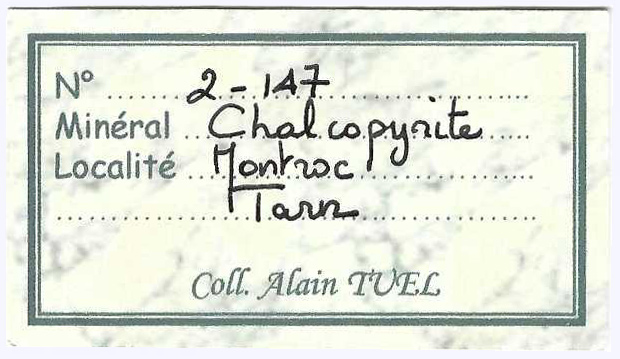 N° ........ 2-147 ........
Minéral .. Chalcopyrite ....
Localité .. Montroc ........
........ Tarn ........
Coll. Alain TUEL